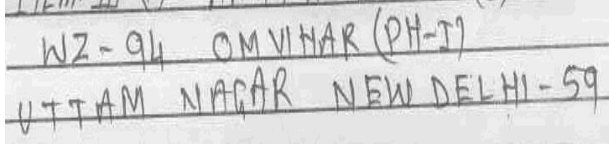 WZ-94 OM VIHAR (PH-I)
UTTAM NAGAR NEW DELHI-59